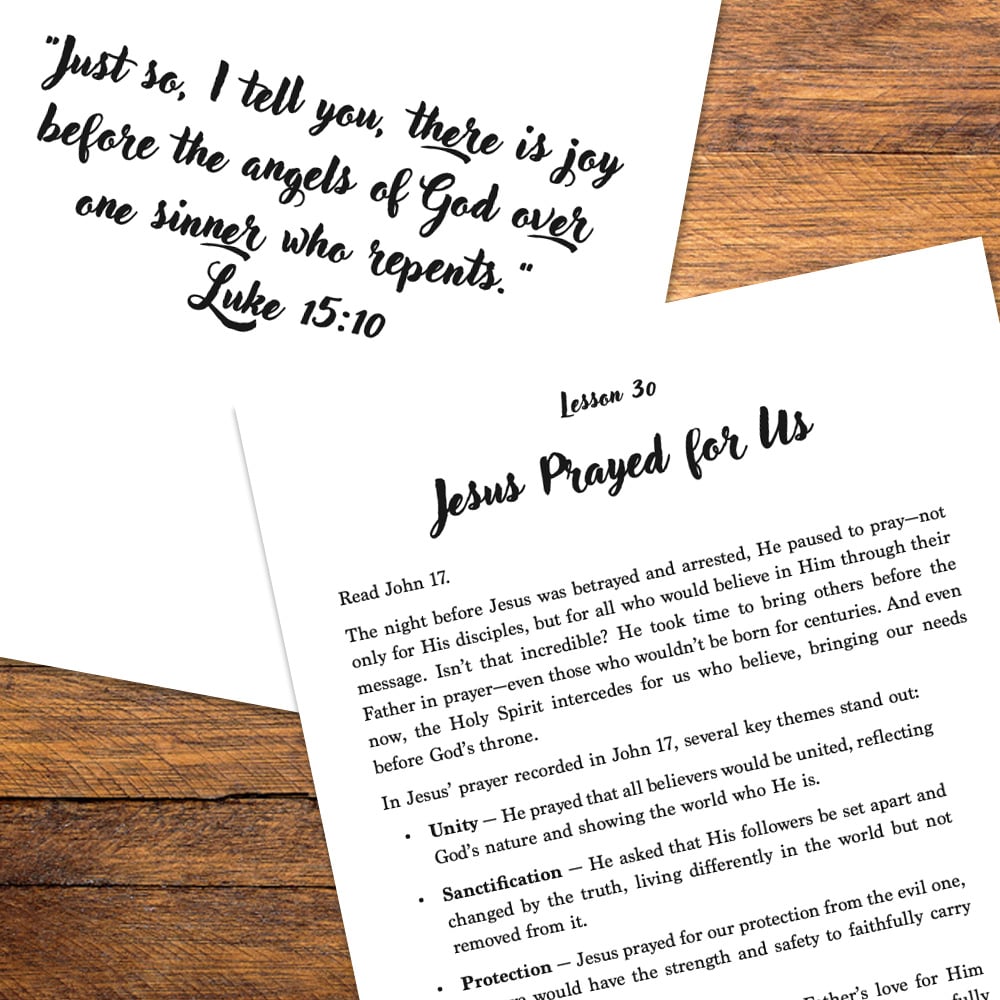 "Just so, I tell you, there is joy
before the angels of God over
one sinner who repents. "
Luke 15:10
Lesson 30
Jesus Prayed for Us
Read John 17.
The night before Jesus was betrayed and arrested, He paused to pray—not
only for His disciples, but for all who would believe in Him through their
message. Isn't that incredible? He took time to bring others before the
Father in prayer—even those who wouldn't be born for centuries. And even
now, the Holy Spirit intercedes for us who believe, bringing our needs
before God's throne.
In Jesus' prayer recorded in John 17, several key themes stand out:
• Unity — He prayed that all believers would be united, reflecting
God's nature and showing the world who He is.
• Sanctification — He asked that His followers be set apart and
changed by the truth, living differently in the world but not
removed from it.
• Protection — Jesus prayed for our protection from the evil one,
would have the strength and safety to faithfully carry
love for Him